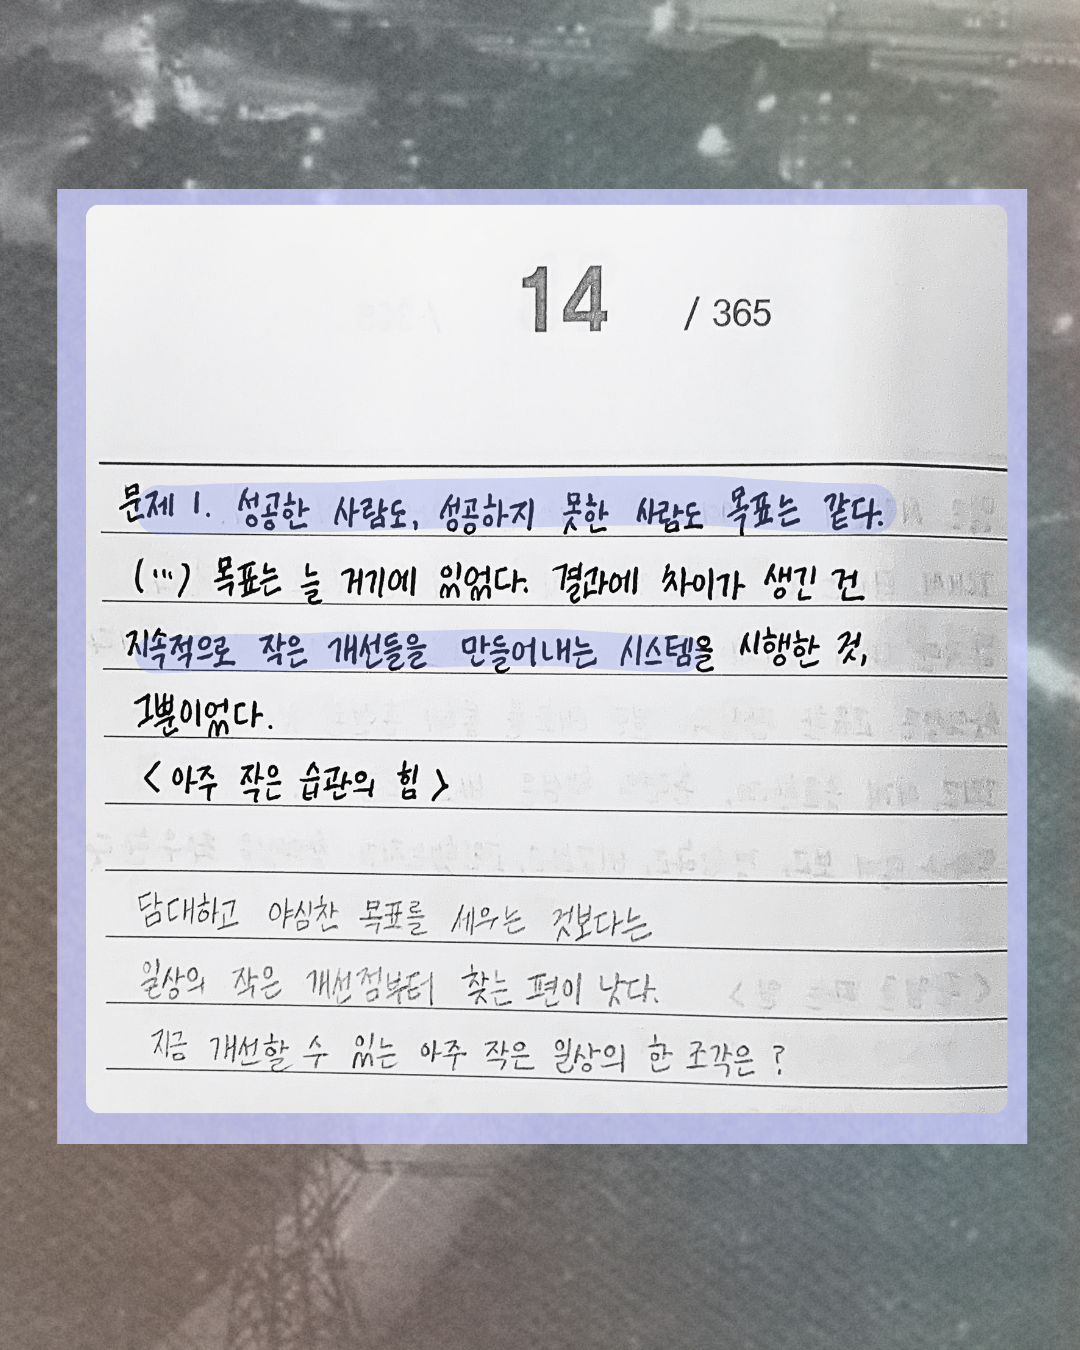 14 / 365
문제 1. 성공한 사람도, 성공하지 못한 사람도 목표는 같다.
(…) 목표는 늘 거기에 있었다. 결과에 차이가 생긴 건
지속적으로 작은 개선들을 만들어내는 시스템을 시행한 것,
그뿐이었다.
<아주 작은 습관의 힘>
담대하고 야심찬 목표를 세우는 것보다는
일상의 작은 개선점부터 찾는 편이 낫다.
지금 개선할 수 있는 아주 작은 일상의 한 조각은?